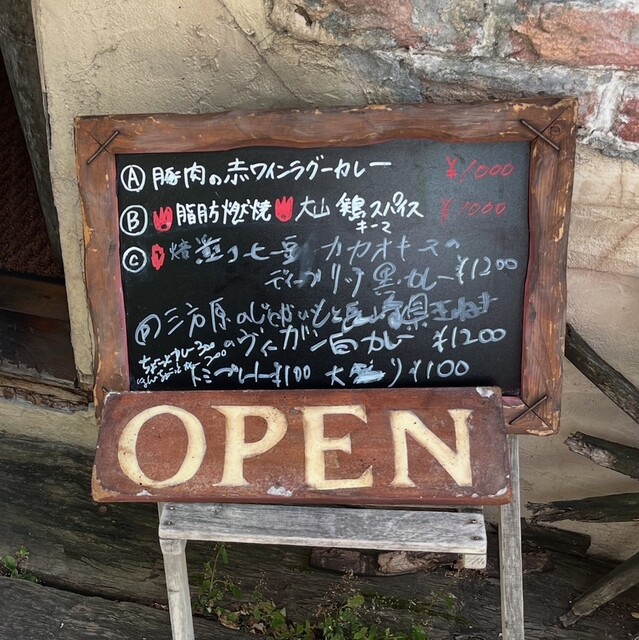 Ⓐ 豚肉の赤ワインラグーカレー ¥1000
Ⓑ 脂肪燃焼 大山鶏スパイス ¥1000
キーマ
Ⓒ 焙煎 七豆 カカオキーマの
ディープリッチ黒カレー ¥1200
Ⓓ 三方原のじゃがいもと 県玉ねぎ
のヴィーガン白カレー ¥1200
ちょこっとカレー300
200
¥100 大盛り ¥100
OPEN